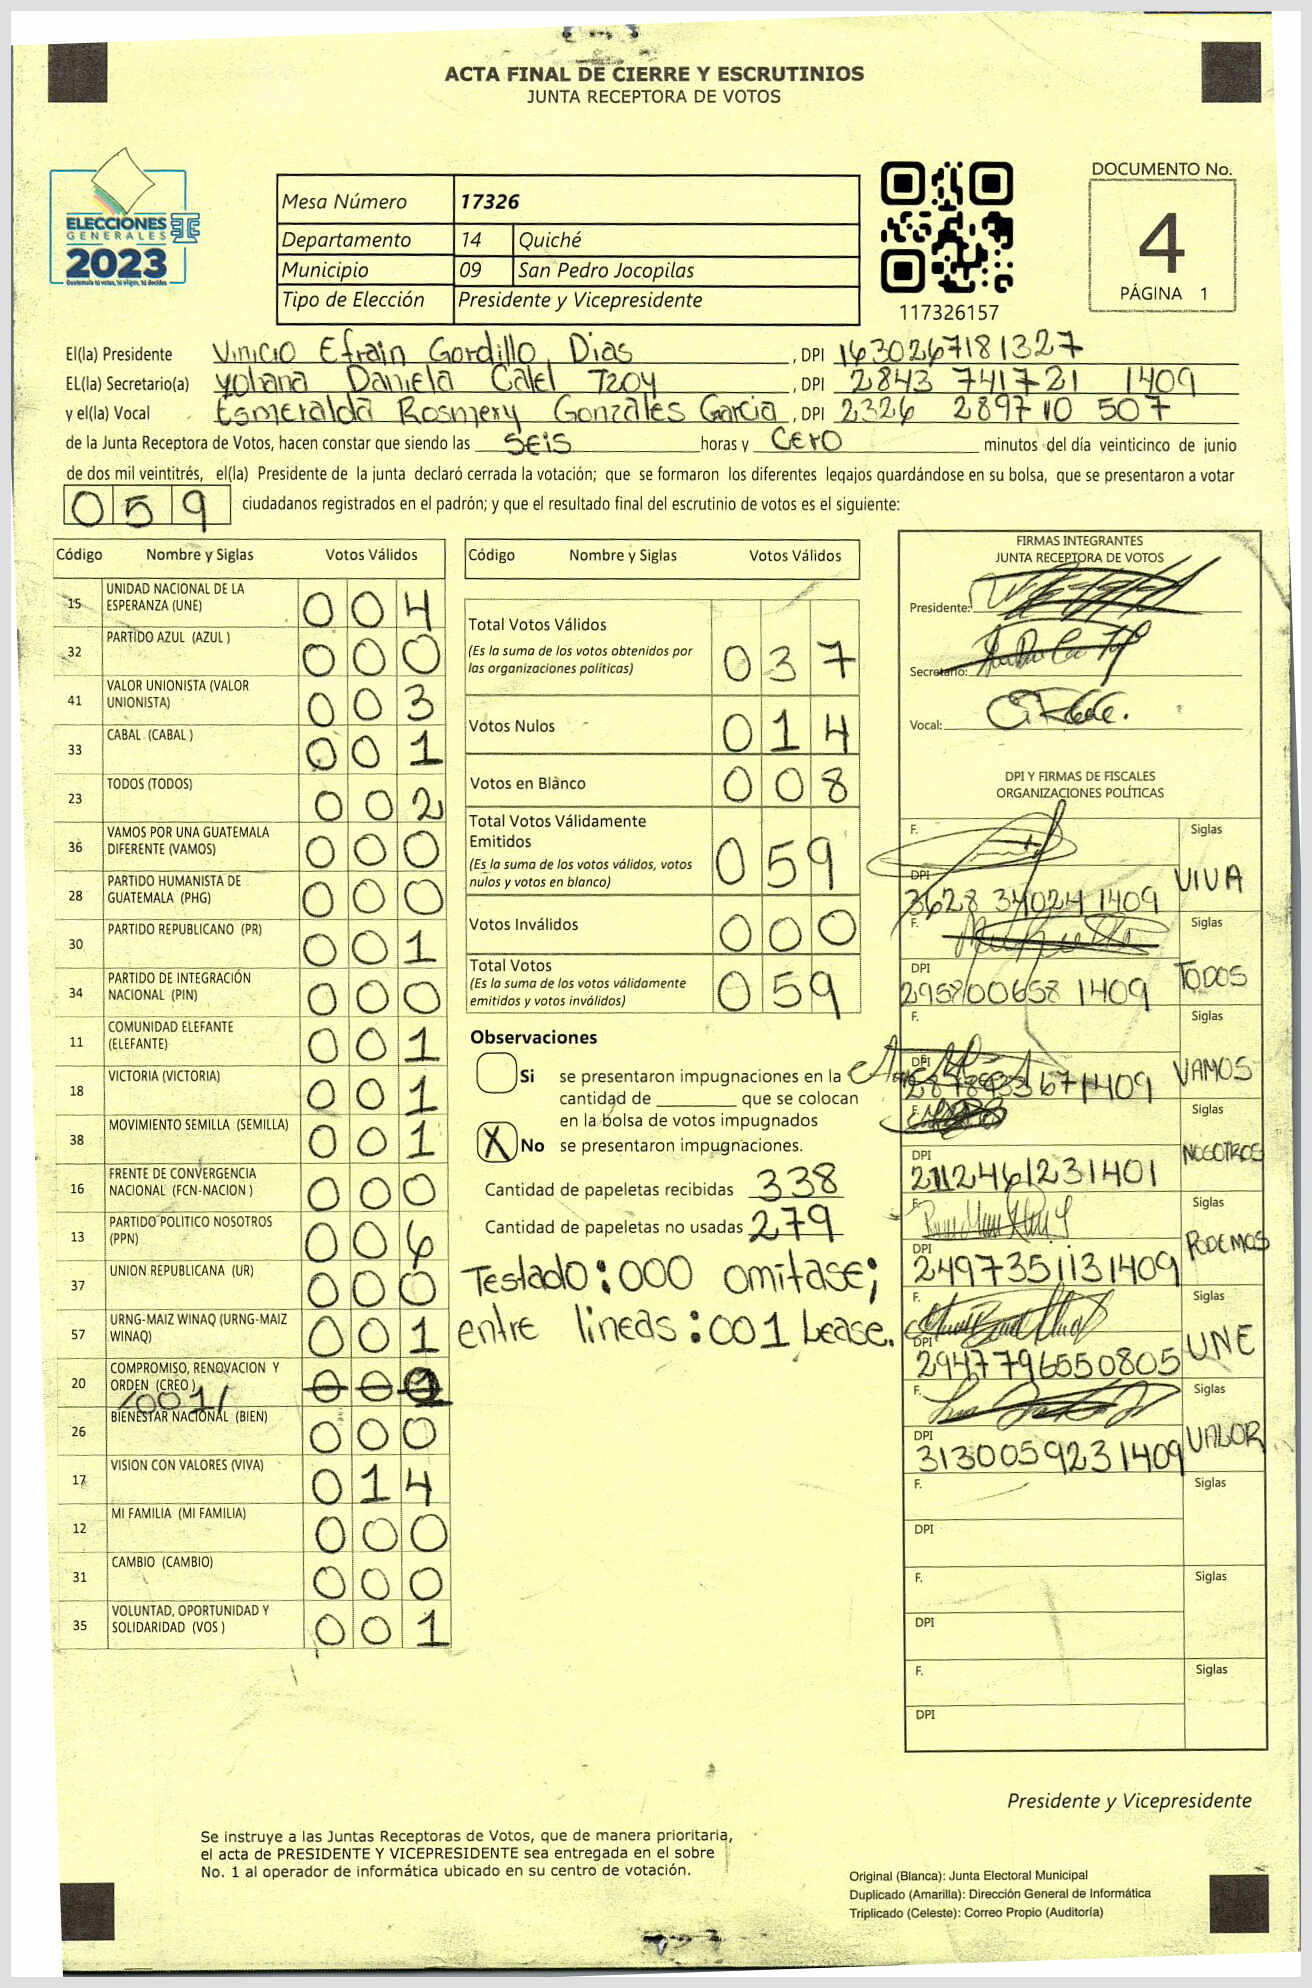 ACTA FINAL DE CIERRE Y ESCRUTINIOS
JUNTA RECEPTORA DE VOTOS
ELECCIONES
GENERALES
2023
Guatemala tú votas, tú eliges, tú decides
Mesa Número 17326
Departamento 14 Quiché
Municipio 09 San Pedro Jocopilas
Tipo de Elección Presidente y Vicepresidente
117326157
DOCUMENTO No.
4
PÁGINA 1
El(la) Presidente Vinicio Efrain Gordillo Dias, DPI 1630267181327
EL(la) Secretario(a) Yohana Daniela Calel Tzoy, DPI 2843 741721 1409
y el(la) Vocal Esmeralda Rosmery Gonzales Garcia, DPI 2326 289710 507
de la Junta Receptora de Votos, hacen constar que siendo las seis horas y cero minutos del día veinticinco de junio
de dos mil veintitrés, el(la) Presidente de la junta declaró cerrada la votación; que se formaron los diferentes legajos guardándose en su bolsa, que se presentaron a votar
059 ciudadanos registrados en el padrón; y que el resultado final del escrutinio de votos es el siguiente:
Código Nombre y Siglas Votos Válidos
15 UNIDAD NACIONAL DE LA ESPERANZA (UNE) 004
32 PARTIDO AZUL (AZUL ) 000
41 VALOR UNIONISTA (VALOR UNIONISTA) 003
33 CABAL (CABAL ) 001
23 TODOS (TODOS) 002
36 VAMOS POR UNA GUATEMALA DIFERENTE (VAMOS) 000
28 PARTIDO HUMANISTA DE GUATEMALA (PHG) 000
30 PARTIDO REPUBLICANO (PR) 001
34 PARTIDO DE INTEGRACIÓN NACIONAL (PIN) 000
11 COMUNIDAD ELEFANTE (ELEFANTE) 001
18 VICTORIA (VICTORIA) 001
38 MOVIMIENTO SEMILLA (SEMILLA) 001
16 FRENTE DE CONVERGENCIA NACIONAL (FCN-NACION ) 000
13 PARTIDO POLITICO NOSOTROS (PPN) 006
37 UNION REPUBLICANA (UR) 000
57 URNG-MAIZ WINAQ (URNG-MAIZ WINAQ) 001
20 COMPROMISO, RENOVACION Y ORDEN (CREO ) /001/
26 BIENESTAR NACIONAL (BIEN) 000
17 VISION CON VALORES (VIVA) 014
12 MI FAMILIA (MI FAMILIA) 000
31 CAMBIO (CAMBIO) 000
35 VOLUNTAD, OPORTUNIDAD Y SOLIDARIDAD (VOS ) 001
Código Nombre y Siglas Votos Válidos
Total Votos Válidos 037
(Es la suma de los votos obtenidos por
las organizaciones políticas)
Votos Nulos 014
Votos en Blanco 008
Total Votos Válidamente
Emitidos 059
(Es la suma de los votos válidos, votos
nulos y votos en blanco)
Votos Inválidos 000
Total Votos 059
(Es la suma de los votos válidamente
emitidos y votos inválidos)
Observaciones
Si se presentaron impugnaciones en la
cantidad de ________ que se colocan
en la bolsa de votos impugnados
X No se presentaron impugnaciones.
Cantidad de papeletas recibidas 338
Cantidad de papeletas no usadas 279
Testado: 000 omitase;
entre lineas: 001 Lease.
FIRMAS INTEGRANTES
JUNTA RECEPTORA DE VOTOS
Presidente:
Secretario:
Vocal:
DPI Y FIRMAS DE FISCALES
ORGANIZACIONES POLÍTICAS
F. Siglas
DPI 3628 34024 1409 VIVA
F. Siglas
DPI 2958100658 1409 TODOS
F. Siglas
DPI VAMOS
Siglas
DPI 2112461231401 NOSOTROS
F. Siglas
DPI 2497351131409 PODEMOS
F. Siglas
DPI 2947796550805 UNE
F. Siglas
DPI 3130059231409 VALOR
F. Siglas
DPI
F. Siglas
DPI
F. Siglas
DPI
Presidente y Vicepresidente
Se instruye a las Juntas Receptoras de Votos, que de manera prioritaria,
el acta de PRESIDENTE Y VICEPRESIDENTE sea entregada en el sobre
No. 1 al operador de informática ubicado en su centro de votación.
Original (Blanca): Junta Electoral Municipal
Duplicado (Amarilla): Dirección General de Informática
Triplicado (Celeste): Correo Propio (Auditoría)